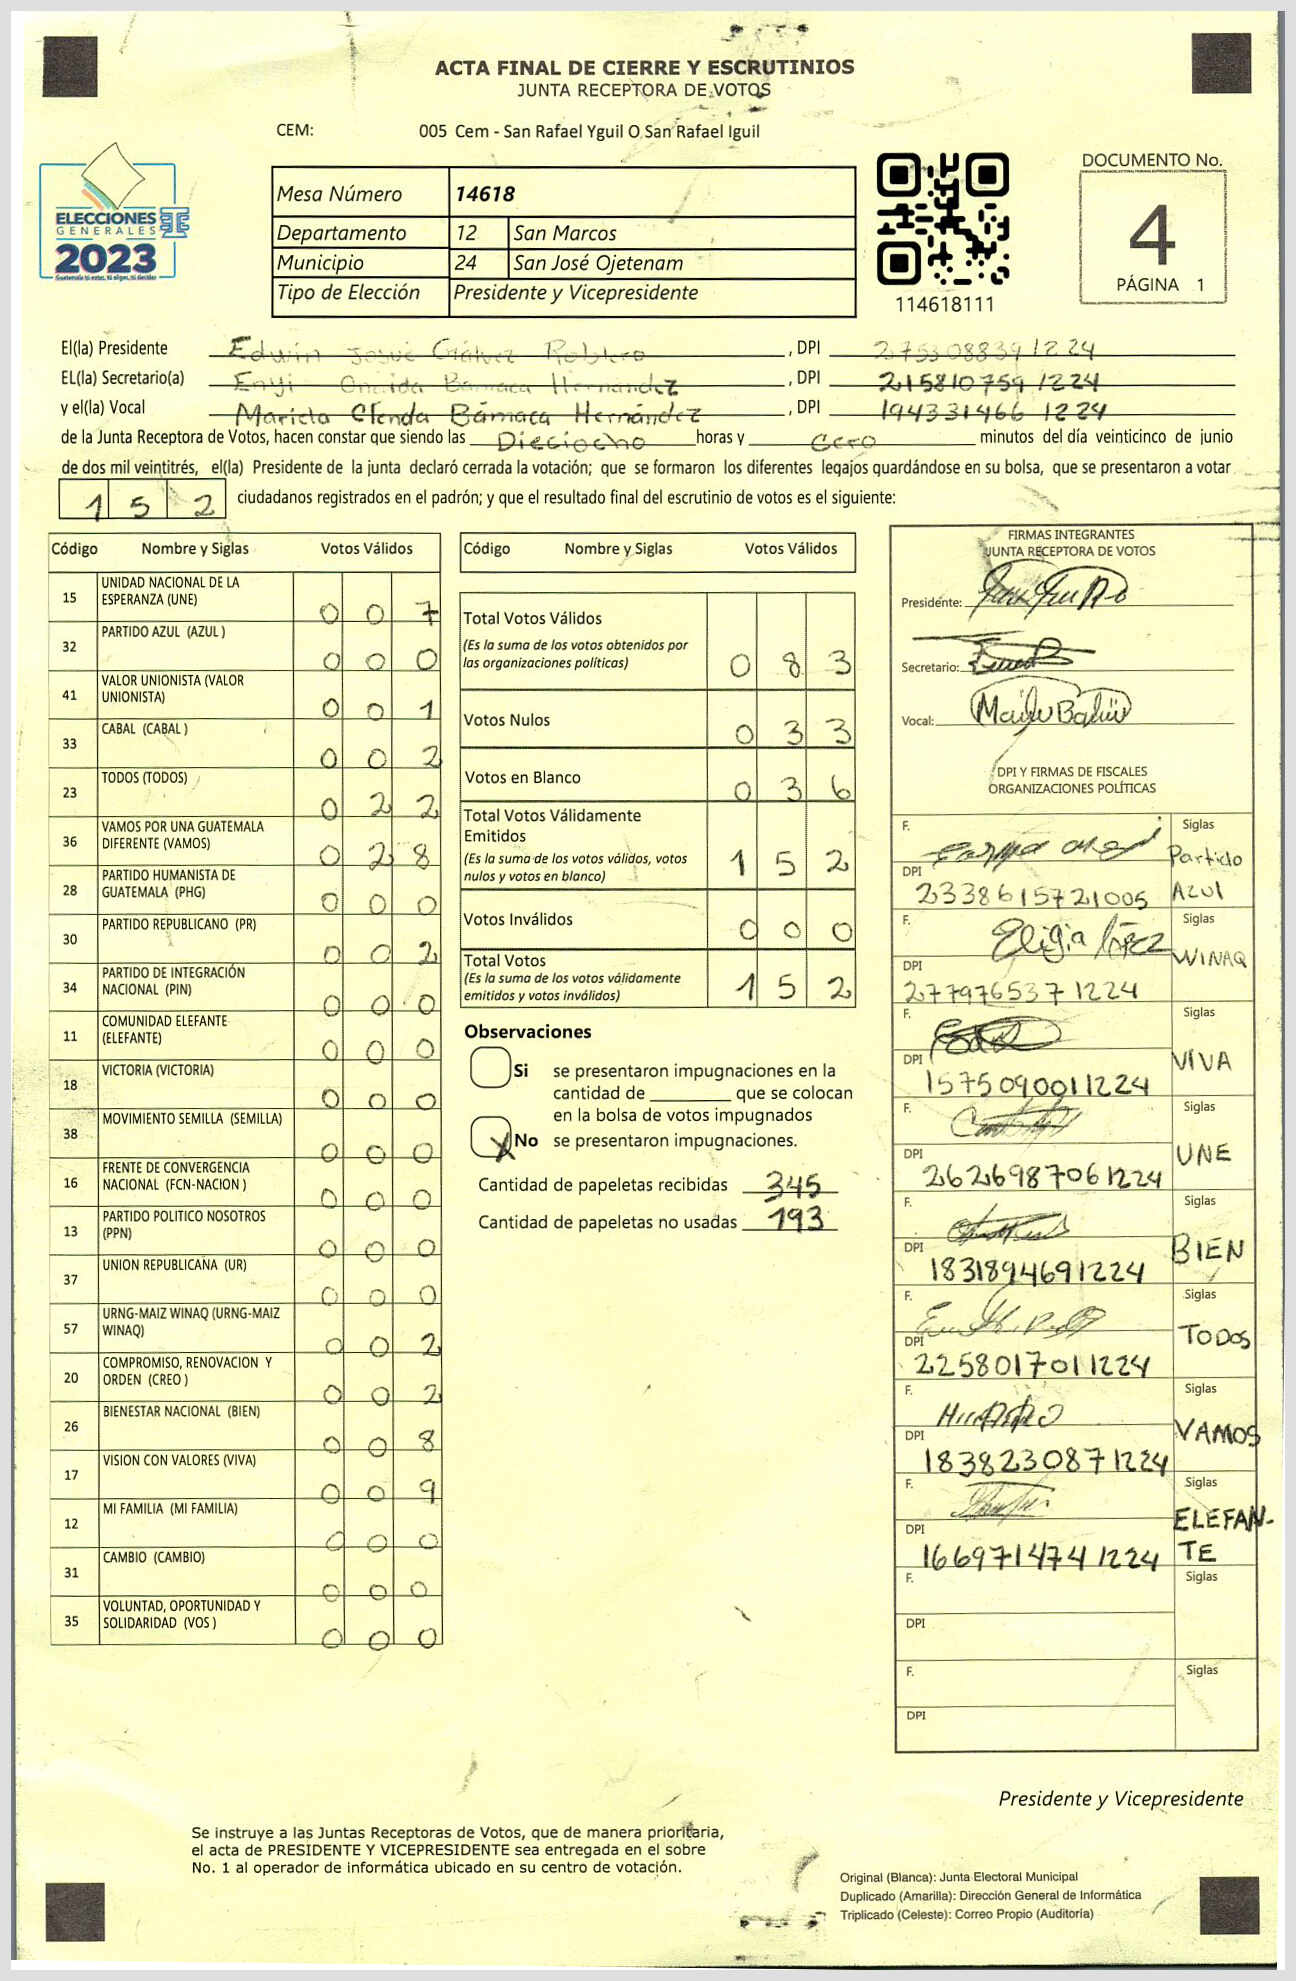 ACTA FINAL DE CIERRE Y ESCRUTINIOS
JUNTA RECEPTORA DE VOTOS
CEM: 005 Cem - San Rafael Yguil O San Rafael Iguil
ELECCIONES
GENERALES
2023
Mesa Número 14618
Departamento 12 San Marcos
Municipio 24 San José Ojetenam
Tipo de Elección Presidente y Vicepresidente
114618111
DOCUMENTO No.
4
PÁGINA 1
El(la) Presidente Edwin Josué Gálvez Roblero, DPI 2753088391224
EL(la) Secretario(a) Enyi Oneida Bámaca Hernández, DPI 2158107591224
y el(la) Vocal Mariela Glenda Bámaca Hernández, DPI 1943314661224
de la Junta Receptora de Votos, hacen constar que siendo las Dieciocho horas y Cero minutos del día veinticinco de junio
de dos mil veintitrés, el(la) Presidente de la junta declaró cerrada la votación; que se formaron los diferentes legajos guardándose en su bolsa, que se presentaron a votar
152 ciudadanos registrados en el padrón; y que el resultado final del escrutinio de votos es el siguiente:
Código Nombre y Siglas Votos Válidos
15 UNIDAD NACIONAL DE LA
ESPERANZA (UNE) 0 0 7
32 PARTIDO AZUL (AZUL ) 0 0 0
41 VALOR UNIONISTA (VALOR
UNIONISTA) 0 0 1
33 CABAL (CABAL ) 0 0 2
23 TODOS (TODOS) 0 2 2
36 VAMOS POR UNA GUATEMALA
DIFERENTE (VAMOS) 0 2 8
28 PARTIDO HUMANISTA DE
GUATEMALA (PHG) 0 0 0
30 PARTIDO REPUBLICANO (PR) 0 0 2
34 PARTIDO DE INTEGRACIÓN
NACIONAL (PIN) 0 0 0
11 COMUNIDAD ELEFANTE
(ELEFANTE) 0 0 0
18 VICTORIA (VICTORIA) 0 0 0
38 MOVIMIENTO SEMILLA (SEMILLA) 0 0 0
16 FRENTE DE CONVERGENCIA
NACIONAL (FCN-NACION ) 0 0 0
13 PARTIDO POLITICO NOSOTROS
(PPN) 0 0 0
37 UNION REPUBLICANA (UR) 0 0 0
57 URNG-MAIZ WINAQ (URNG-MAIZ
WINAQ) 0 0 2
20 COMPROMISO, RENOVACION Y
ORDEN (CREO ) 0 0 2
26 BIENESTAR NACIONAL (BIEN) 0 0 8
17 VISION CON VALORES (VIVA) 0 0 9
12 MI FAMILIA (MI FAMILIA) 0 0 0
31 CAMBIO (CAMBIO) 0 0 0
35 VOLUNTAD, OPORTUNIDAD Y
SOLIDARIDAD (VOS ) 0 0 0
Código Nombre y Siglas Votos Válidos
Total Votos Válidos
(Es la suma de los votos obtenidos por
las organizaciones políticas) 0 8 3
Votos Nulos 0 3 3
Votos en Blanco 0 3 6
Total Votos Válidamente
Emitidos
(Es la suma de los votos válidos, votos
nulos y votos en blanco) 1 5 2
Votos Inválidos 0 0 0
Total Votos
(Es la suma de los votos válidamente
emitidos y votos inválidos) 1 5 2
Observaciones
Si se presentaron impugnaciones en la
cantidad de ________ que se colocan
en la bolsa de votos impugnados
X No se presentaron impugnaciones.
Cantidad de papeletas recibidas 345
Cantidad de papeletas no usadas 193
FIRMAS INTEGRANTES
JUNTA RECEPTORA DE VOTOS
Presidente:
Secretario:
Vocal:
DPI Y FIRMAS DE FISCALES
ORGANIZACIONES POLÍTICAS
F. Siglas
Partido
AZUL
DPI 2338615721005
F. Eligia López Siglas
WINAQ
DPI 2779765371224
F. Siglas
VIVA
DPI 1575090011224
F. Siglas
UNE
DPI 2626987061224
F. Siglas
BIEN
DPI 1831894691224
F. Siglas
TODOS
DPI 2258017011224
F. Siglas
VAMOS
DPI 1838230871224
F. Siglas
ELEFAN-
TE
DPI 1669714741224
F. Siglas
DPI
F. Siglas
DPI
Presidente y Vicepresidente
Se instruye a las Juntas Receptoras de Votos, que de manera prioritaria,
el acta de PRESIDENTE Y VICEPRESIDENTE sea entregada en el sobre
No. 1 al operador de informática ubicado en su centro de votación.
Original (Blanca): Junta Electoral Municipal
Duplicado (Amarilla): Dirección General de Informática
Triplicado (Celeste): Correo Propio (Auditoría)